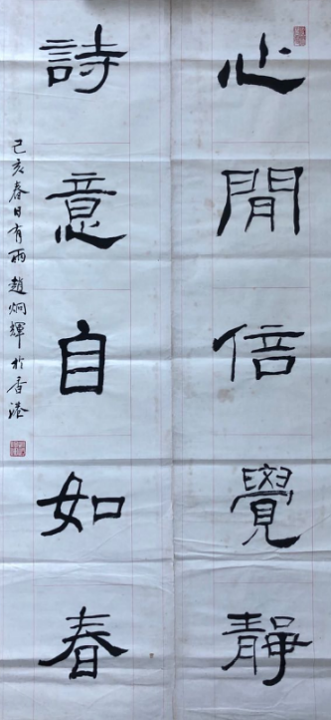 心閒倍覺靜
詩意自如春
己亥春日有雨趙炯輝於香港